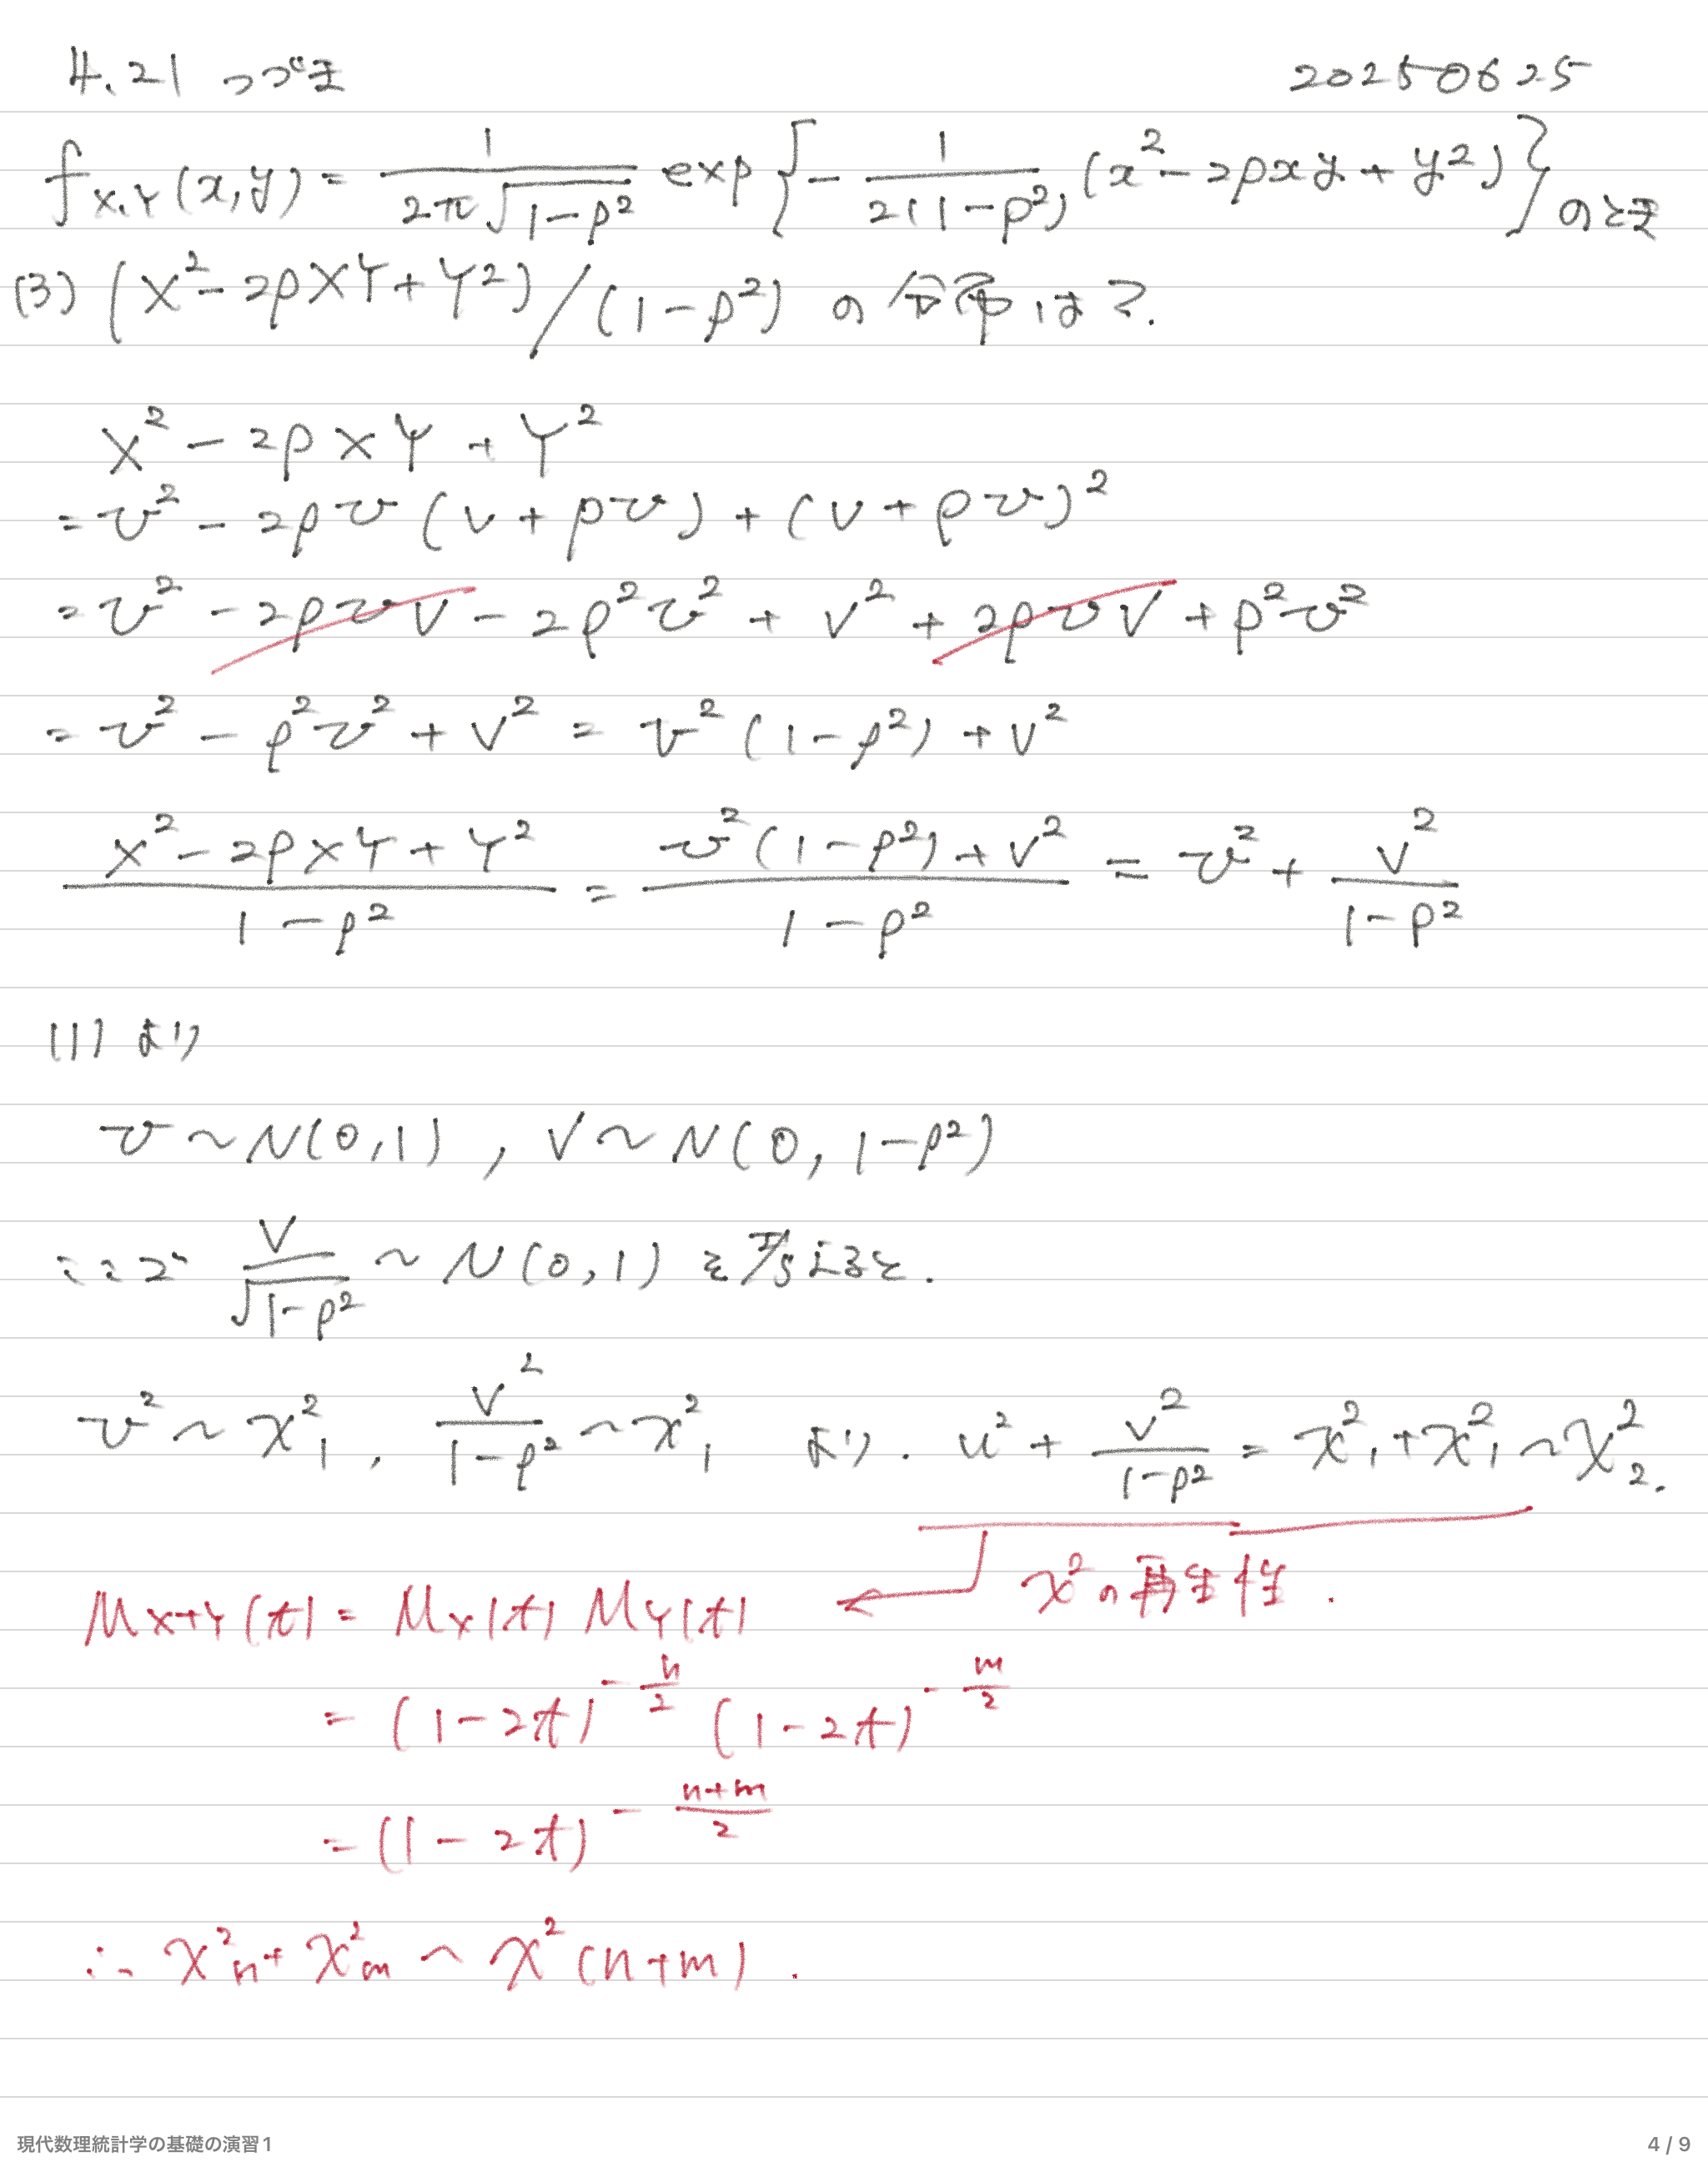 4.21 つづき 20250625
f_{X,Y}(x,y) = \frac{1}{2π\sqrt{1-ρ^2}} exp{ -\frac{1}{2(1-ρ^2)} (x^2 - 2ρxy + y^2) } のとき
(3) (X^2 - 2ρXY + Y^2) / (1-ρ^2) の分布は?.
X^2 - 2ρXY + Y^2
= U^2 - 2ρU(V + ρU) + (V + ρU)^2
= U^2 - 2ρUV - 2ρ^2U^2 + V^2 + 2ρUV + ρ^2U^2
= U^2 - ρ^2U^2 + V^2 = U^2(1-ρ^2) + V^2
\frac{X^2 - 2ρXY + Y^2}{1-ρ^2} = \frac{U^2(1-ρ^2) + V^2}{1-ρ^2} = U^2 + \frac{V^2}{1-ρ^2}
(1) より
U ~ N(0,1), V ~ N(0, 1-ρ^2)
ここで \frac{V}{\sqrt{1-ρ^2}} ~ N(0,1) を考えると.
U^2 ~ χ^2_1, \frac{V^2}{1-ρ^2} ~ χ^2_1 より. U^2 + \frac{V^2}{1-ρ^2} = χ^2_1 + χ^2_1 ~ χ^2_2.
χ^2の再生性.
M_{X+Y}(t) = M_X(t) M_Y(t)
= (1-2t)^{-\frac{n}{2}} (1-2t)^{-\frac{m}{2}}
= (1-2t)^{-\frac{n+m}{2}}
∴ χ^2_n + χ^2_m ~ χ^2(n+m).
現代数理統計学の基礎の演習1 4 / 9